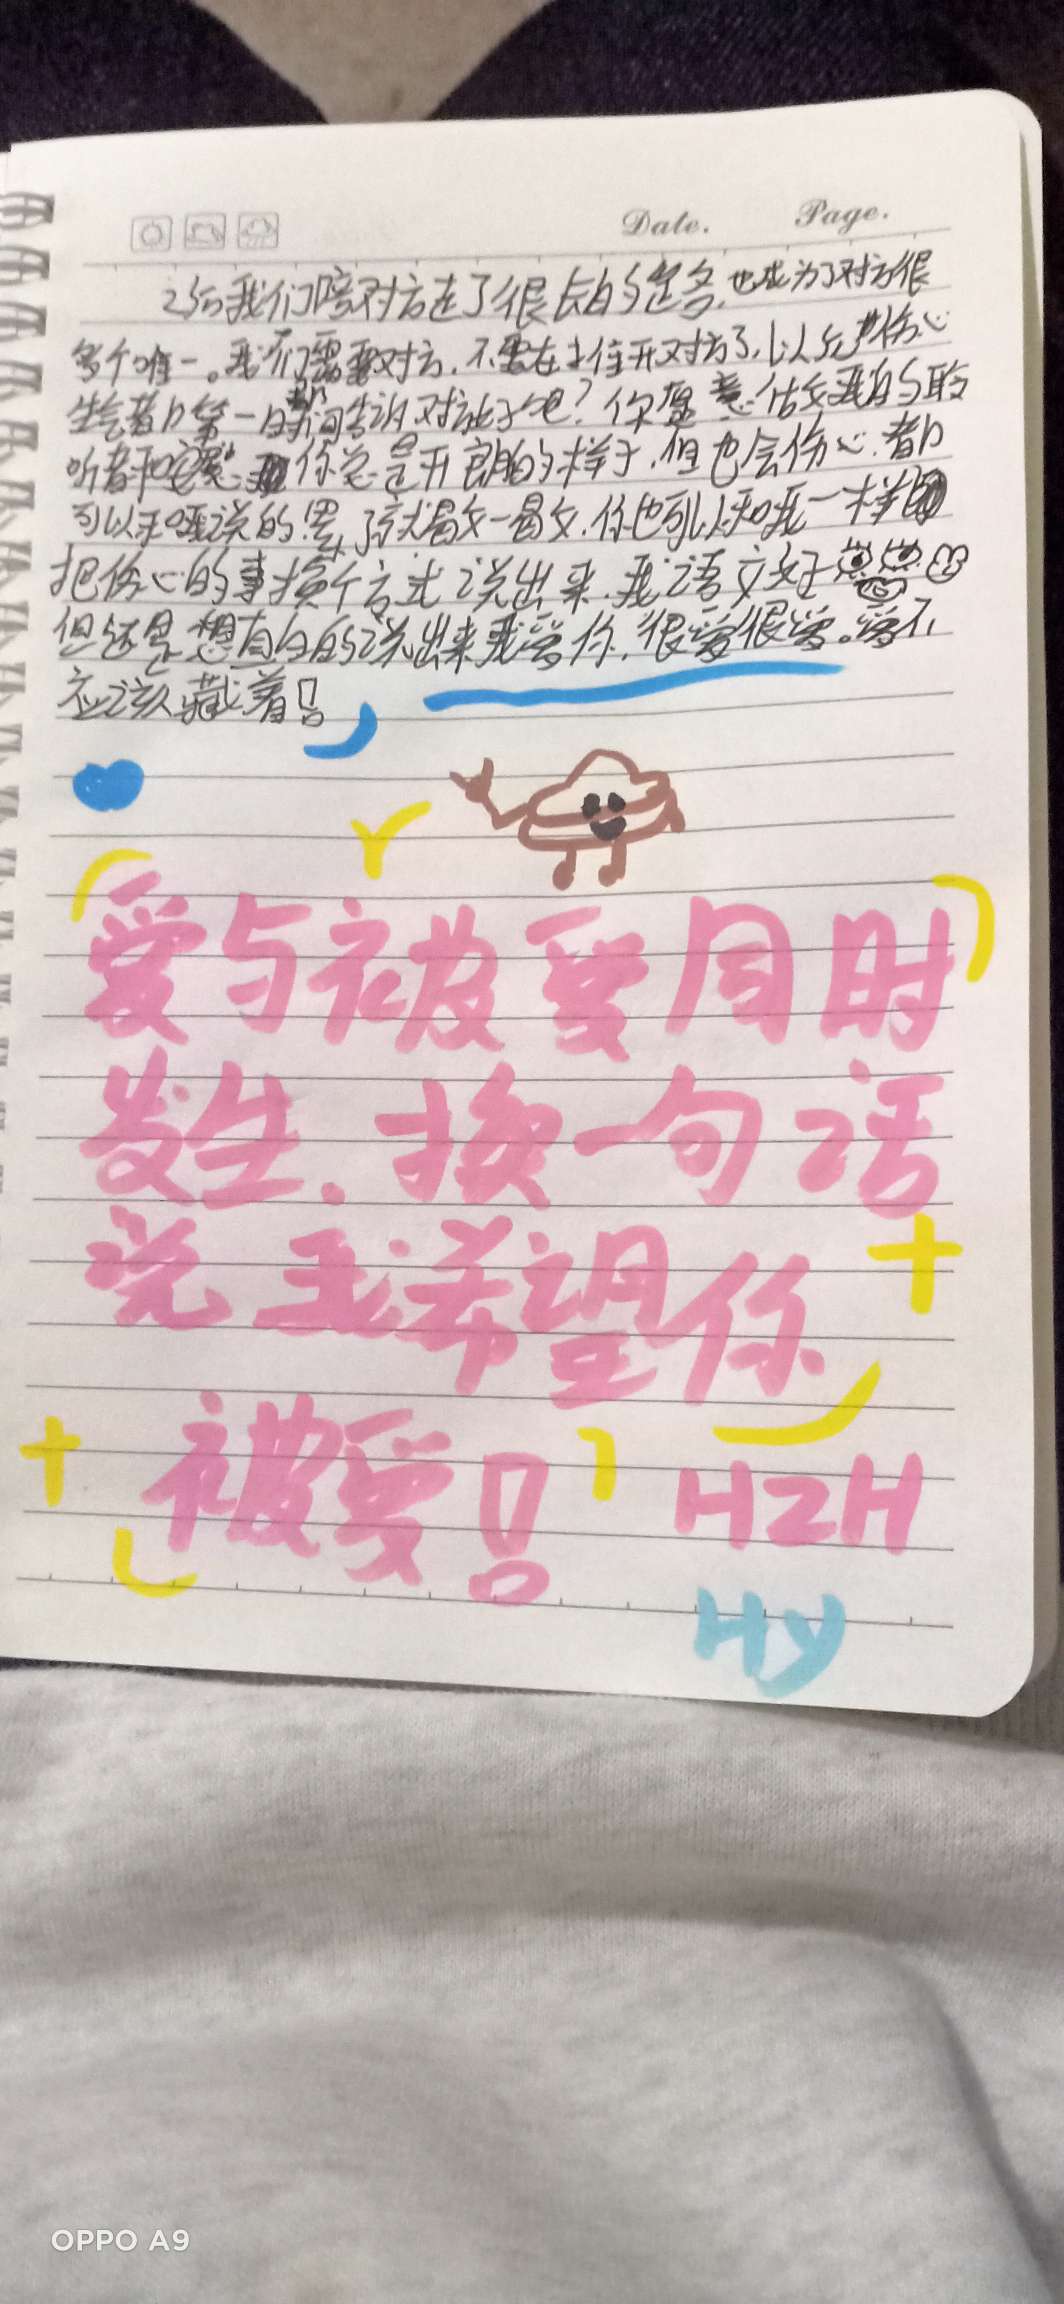 Date. Page.
之后我们陪对方走了很长的路,也成为了对方很
多个唯一。我们需要对方,不要在推开对方了,以后伤心
生气都第一时间告诉对方好吧?你愿意做我的聆
听者和 你总是开朗的样子,但也会伤心.都
可以和我说的,累了就, 你也可以和我一样
把伤心的事换个方式说出来.我语文好
但还是想直白的说出来我爱你,很爱很爱。爱不
应该藏着!
爱与被爱同时
发生.换一句话
说我希望你
被爱!
HZH
Hy
OPPO A9